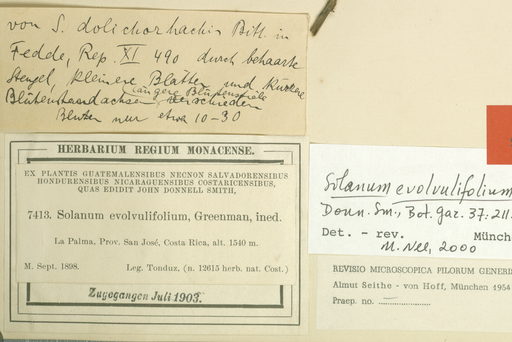 von S. dolichorhachis Bitt. in
Fedde, Rep. XI 490 durch behaarte
Stengel, kleinere Blätter und kürzere
längere Blütenstiele
Blütenstandachsen, verschieden
Blüten nur etwa 10-30
HERBARIUM REGIUM MONACENSE.
EX PLANTIS GUATEMALENSIBUS NECNON SALVADORENSIBUS
HONDURENSIBUS NICARAGUENSIBUS COSTARICENSIBUS,
QUAS EDIDIT JOHN DONNELL SMITH,
7413. Solanum evolvulifolium, Greenman, ined.
La Palma, Prov. San José, Costa Rica, alt. 1540 m.
M. Sept. 1898. Leg. Tonduz, (n. 12615 herb. nat. Cost.)
Zugegangen Juli 1903.
Solanum evolvulifolium
Donn. Sm., Bot. gaz. 37: 211.
Det. - rev. Münch
M. Nee, 2000
REVISIO MICROSCOPICA PILORUM GENERIS
Almut Seithe - von Hoff, München 1954
Praep. no. –